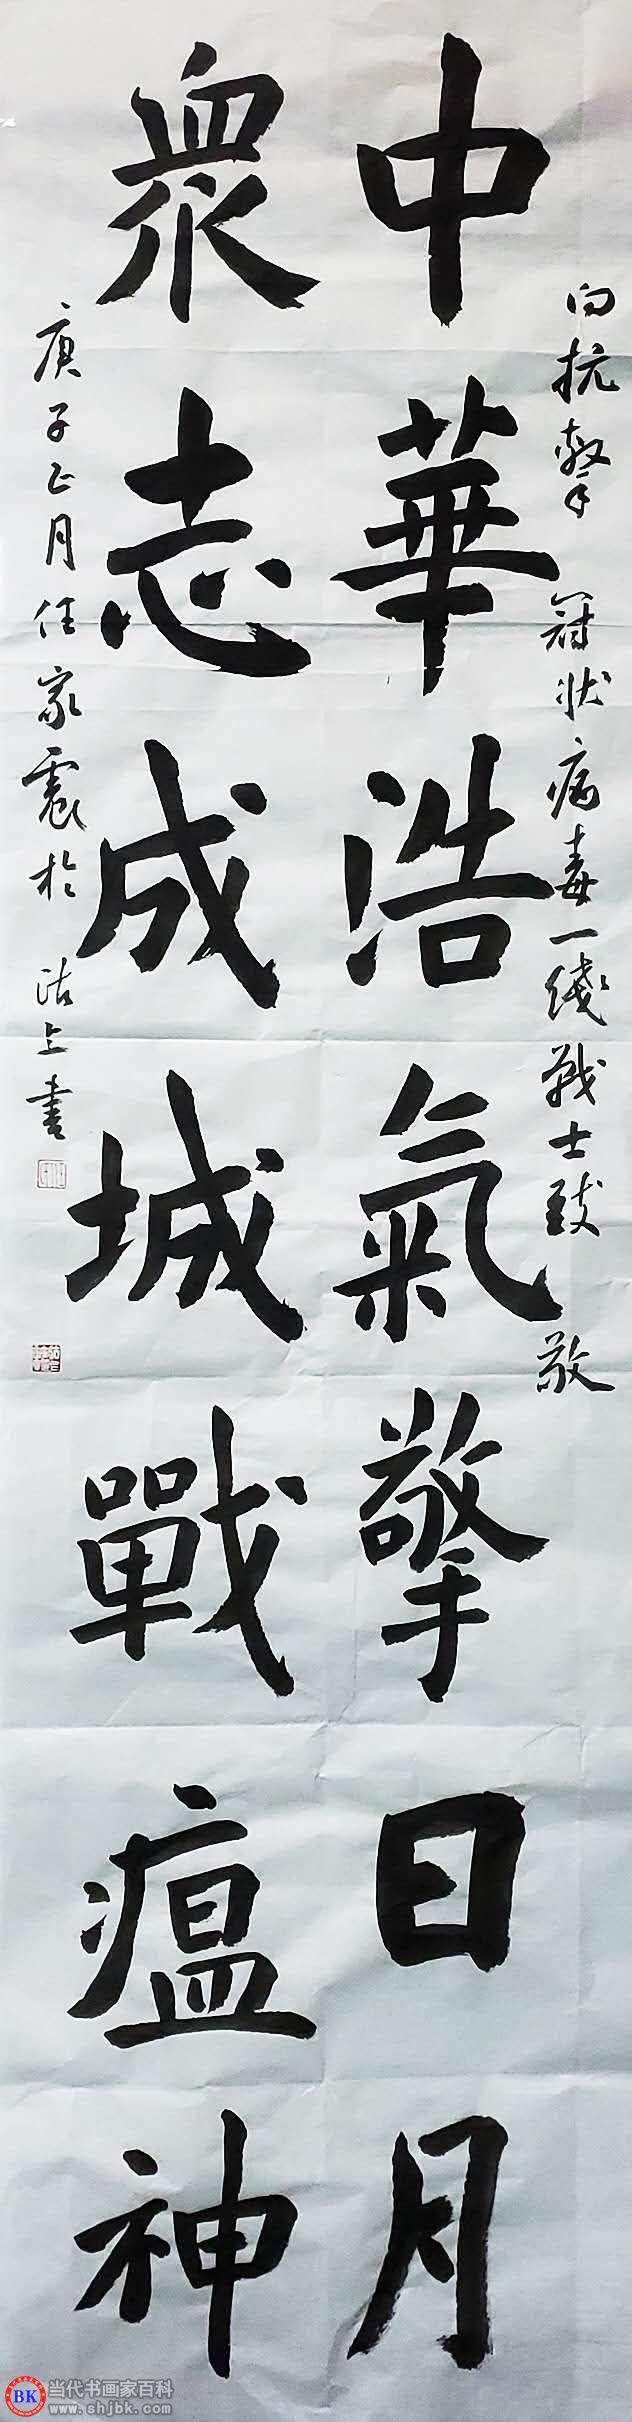 向抗擊 冠狀病毒一线戰士致 敬
中華浩氣擎日月
衆志成城戰瘟神
庚子正月任家震於 沽上書
BK 当代书画家百科
www.shjbk.com